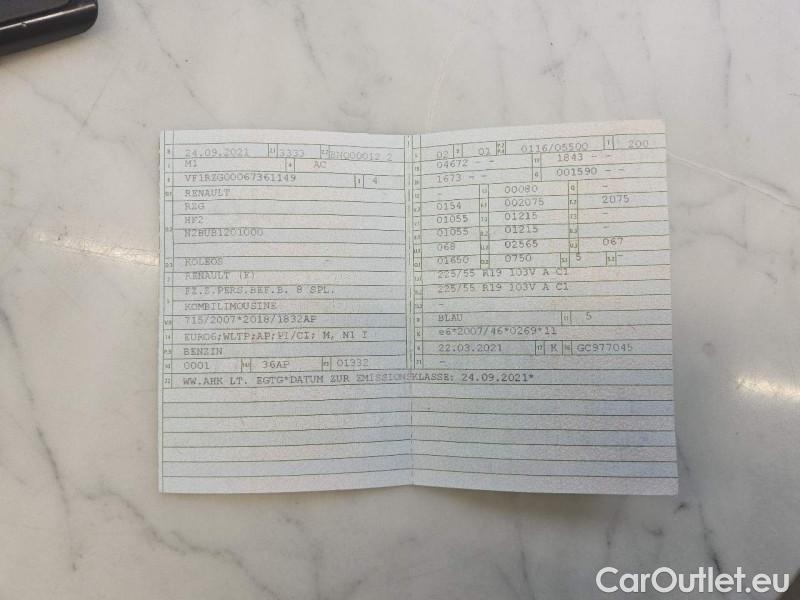 24.09.2021 3333 BNQ00012 2
M1 AC
VF1RZG00067361149 4
RENAULT
RZG
HF2
N2BUB1201000
KOLEOS
RENAULT (F)
FZ.Z.PERS.BEF.B. 8 SPL.
KOMBILIMOUSINE
715/2007*2018/1832AP
EURO6;WLTP;AP;PI/CI; M, N1 I
BENZIN
0001 36AP 01332
WW.AHK LT. EGTG*DATUM ZUR EMISSIONSKLASSE: 24.09.2021*
02 01 0116/05500 200
04672 - - 1843 - -
1673 - - 001590 - -
- 00080 -
0154 002075 2075
01055 01215 -
01055 01215 -
068 02565 067
01650 0750 5 -
225/55 R19 103V A C1
225/55 R19 103V A C1
-
BLAU 5
e6*2007/46*0269*11
22.03.2021 K GC977045
-
CarOutlet.eu